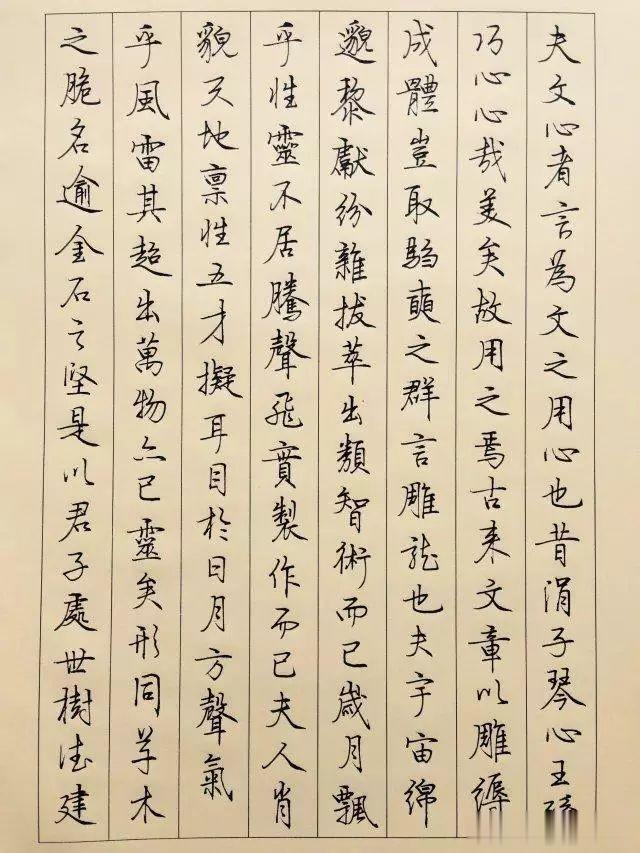 夫文心者言為文之用心也昔涓子琴心王
巧心心哉美矣故用之焉古来文章以雕縟
成體豈取騶奭之群言雕龍也夫宇宙綿
邈黎獻紛雜拔萃出類智術而已歲月飄
乎性靈不居騰聲飛實製作而已夫人肖
貌天地稟性五才擬耳目於日月方聲氣
乎風雷其超出萬物亦已靈矣形同草木
之脆名逾金石之堅是以君子處世樹德建